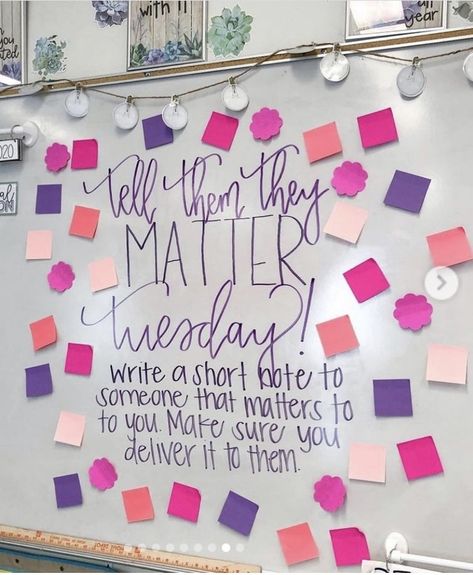 with it
all year
2020
tell them they
MATTER
tuesday!
write a short note to
someone that matters to
to you. Make sure you
deliver it to them.